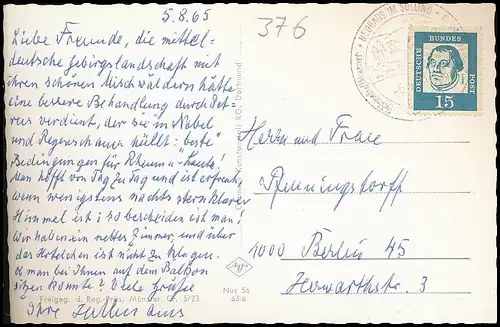 5.8.65
376
Liebe Freunde, die mittel-
deutsche Gebirgslandschaft mit
ihren schönen Mischwäldern hätte
eine bessere Behandlung durch Pet-
rus verdient, der sie in Nebel
und Regenschauer hüllt: "beste"
Bedingungen für Rheuma-Leute!
Man hofft von Tag zu Tag und ist erfreut,
wenn wenigstens nachts sternklarer
Himmel ist; so bescheiden ist man!
Wir haben ein nettes Zimmer, und über
das Hotelchen ist nicht zu klagen.
Ob man bei Ihnen auf dem Balkon
sitzen konnte? Viele Grüße
Ihre
Freigeg. d. Reg. Präs. Münster Cr. 5/23
Nus 56
63/8
Agfa
NEUHAUS IM SOLLING
DEUTSCHE BUNDES POST
15
Herrn und Frau
Pfenningstorff
1000 Berlin 45
Howarthstr. 3